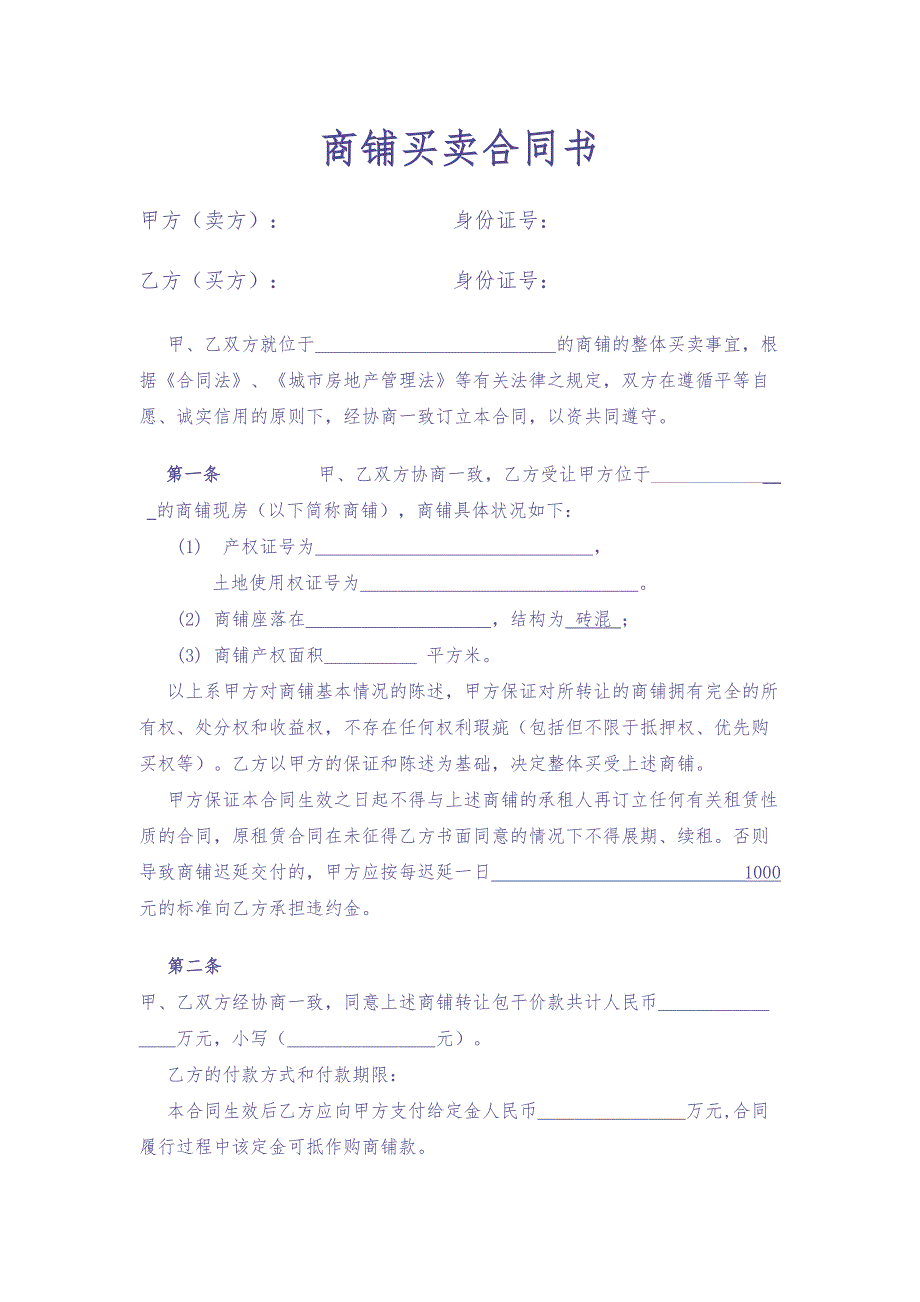 商铺买卖合同书
甲方（卖方）： 身份证号：
乙方（买方）： 身份证号：
甲、乙双方就位于__________________________的商铺的整体买卖事宜，根
据《合同法》、《城市房地产管理法》等有关法律之规定，双方在遵循平等自
愿、诚实信用的原则下，经协商一致订立本合同，以资共同遵守。
第一条 甲、乙双方协商一致，乙方受让甲方位于______________
_的商铺现房（以下简称商铺），商铺具体状况如下：
(1) 产权证号为______________________________，
土地使用权证号为______________________________。
(2) 商铺座落在____________________，结构为 砖混 ；
(3) 商铺产权面积__________ 平方米。
以上系甲方对商铺基本情况的陈述，甲方保证对所转让的商铺拥有完全的所
有权、处分权和收益权，不存在任何权利瑕疵（包括但不限于抵押权、优先购
买权等）。乙方以甲方的保证和陈述为基础，决定整体买受上述商铺。
甲方保证本合同生效之日起不得与上述商铺的承租人再订立任何有关租赁性
质的合同，原租赁合同在未征得乙方书面同意的情况下不得展期、续租。否则
导致商铺迟延交付的，甲方应按每迟延一日 1000
元的标准向乙方承担违约金。
第二条
甲、乙双方经协商一致，同意上述商铺转让包干价款共计人民币____________
____万元，小写（________________元）。
乙方的付款方式和付款期限：
本合同生效后乙方应向甲方支付给定金人民币________________万元,合同
履行过程中该定金可抵作购商铺款。